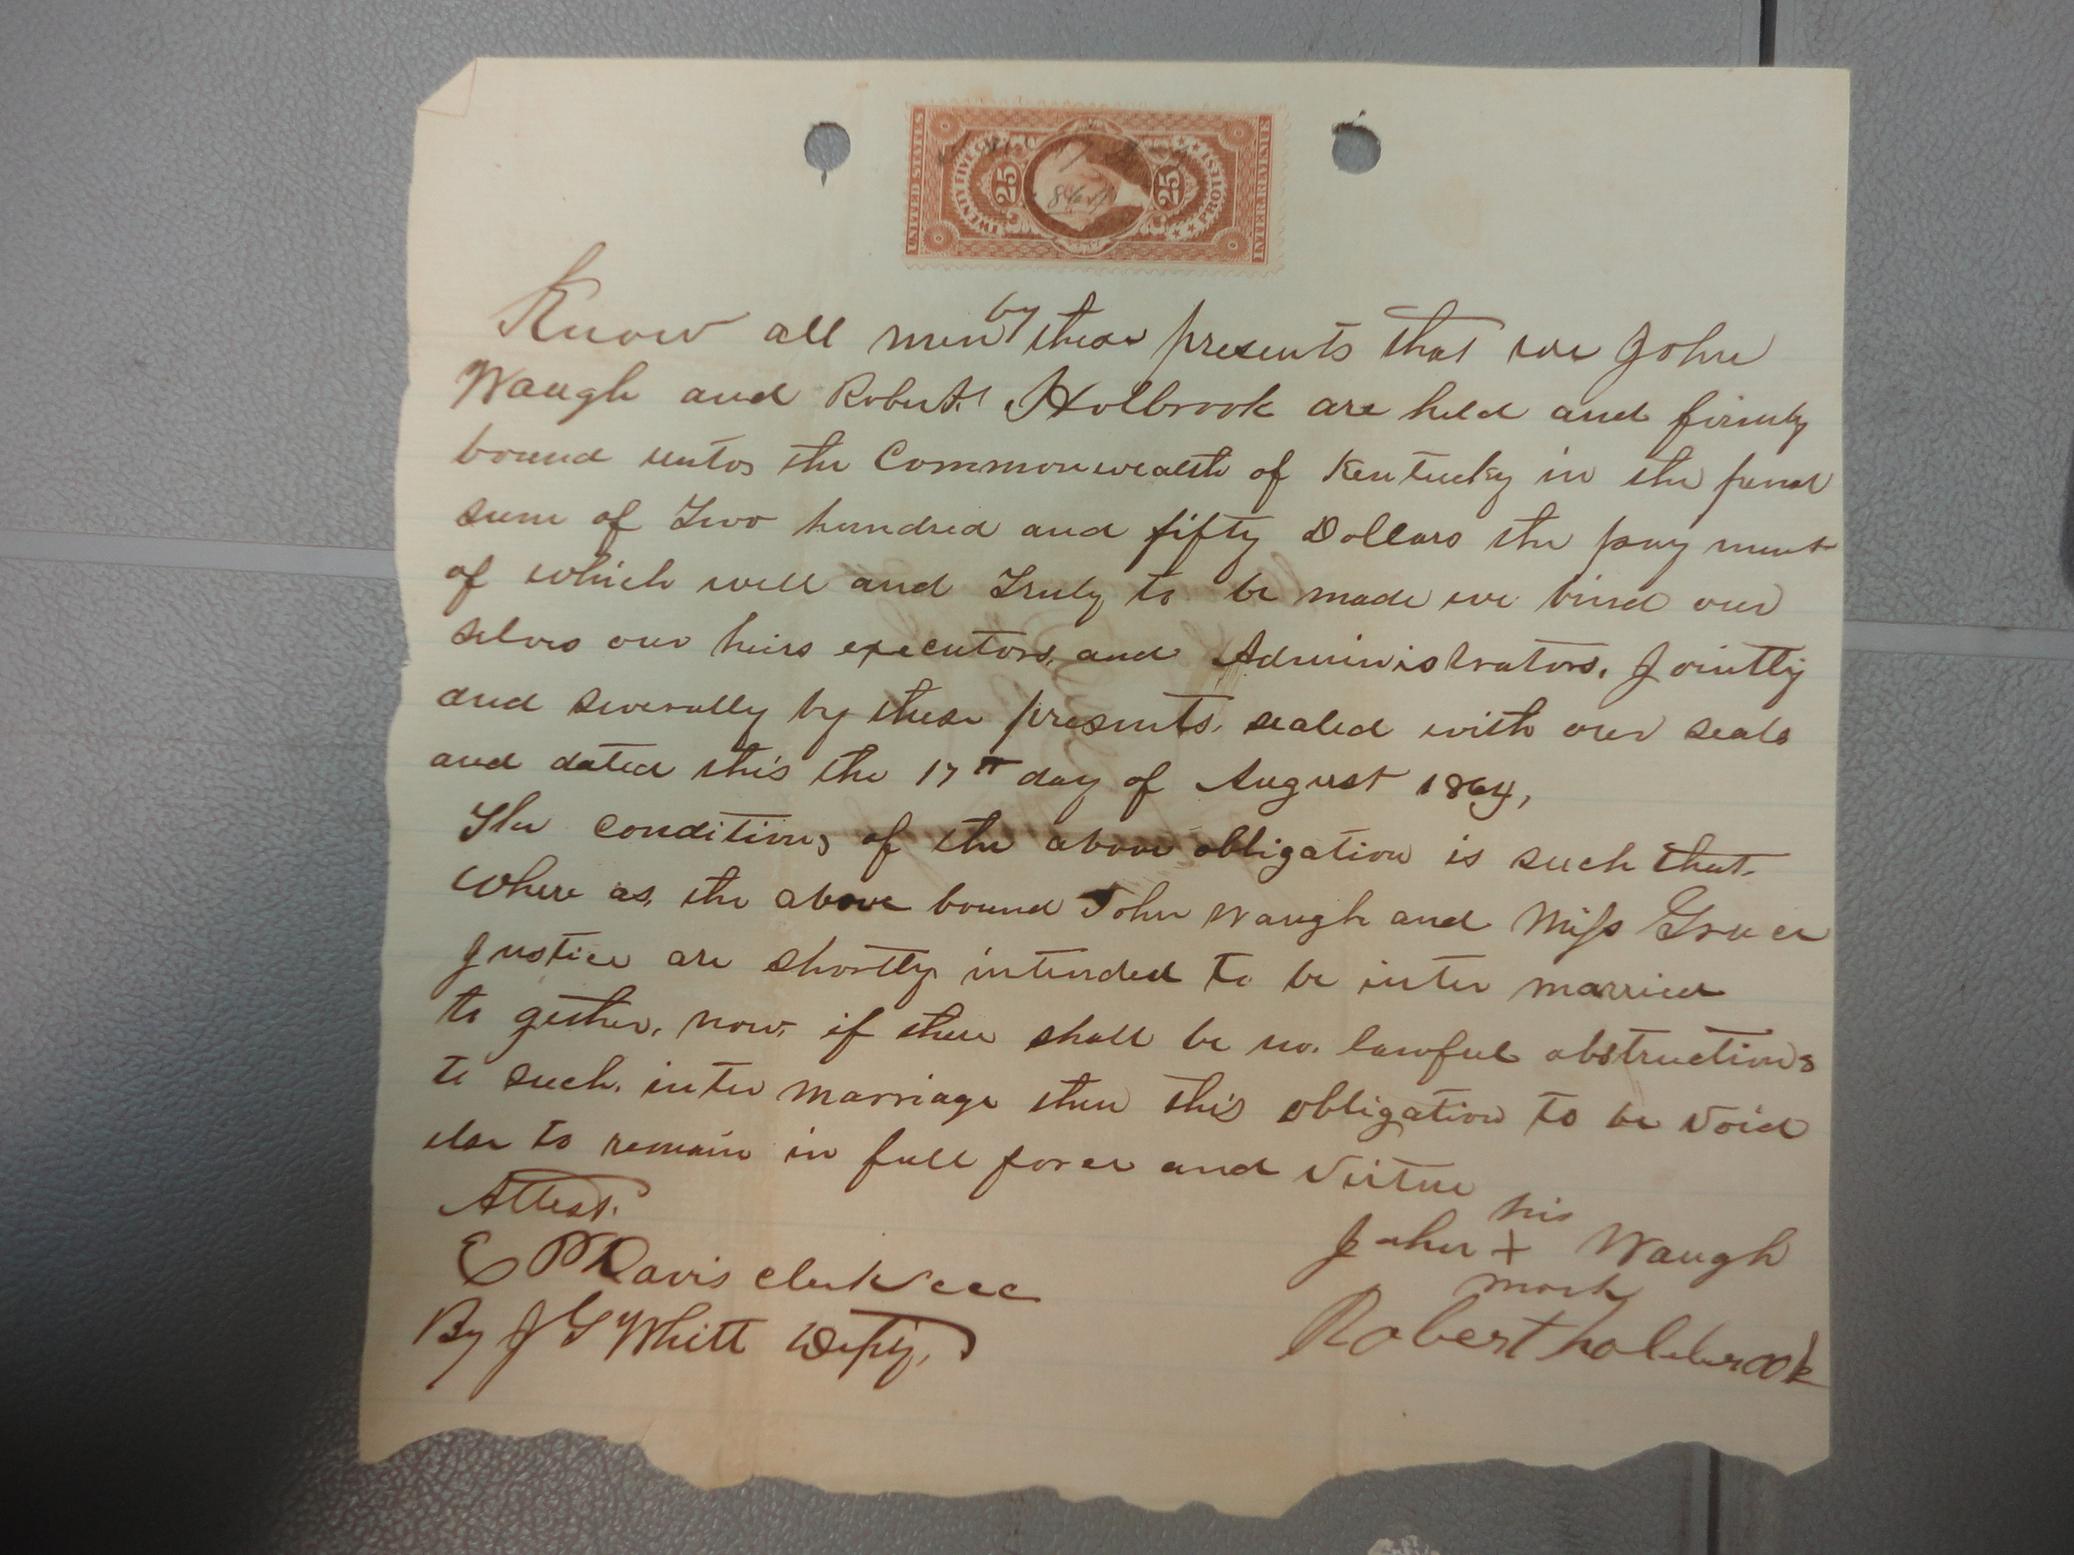 UNITED STATES
TWENTY FIVE
25
25
INTER. REVENUE
Know all men by these presents that we John
Waugh and Robert Holbrook are held and firmly
bound unto the Commonwealth of Kentucky in the penal
sum of Two hundred and fifty Dollars the pay ment
of which well and Truly to be made we bind our
selves our heirs executors, and Administrators, Jointly
and severally by these presents. sealed with our seals
and dated this the 17th day of August 1864,
The conditions of the above obligation is such that
Where as, the above bound John Waugh and Miss Grace
Justice are shortly intended to be inter married
to gether, now, if there shall be no. lawful obstructions
to such. inter marriage then this obligation to be void
else to remain in full force and virtue
Attest.
E P Davis clerk ccc
By J G Whitt Depty,
his
John + Waugh
mark
Robert holebrook